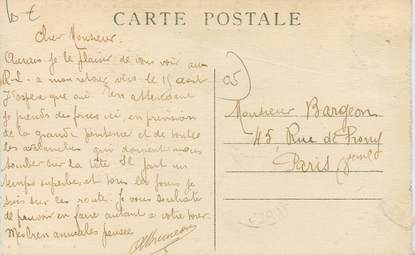 CARTE POSTALE
Cher Monsieur.
Aurais-je le plaisir de vous voir au
à mon retour vers le 15 août
J'espère que oui. En attendant
je prends des forces ici, en prévision
de la grande et de toutes
les avalanches qui doivent nous
tomber sur la tête Il fait un
temps superbe et tous les jours je
suis sur les routes. Je vous souhaite
de pouvoir en faire autant à votre tour.
Meilleures amicales pensées
05
Monsieur Bargeon
45, Rue de Prony
Paris